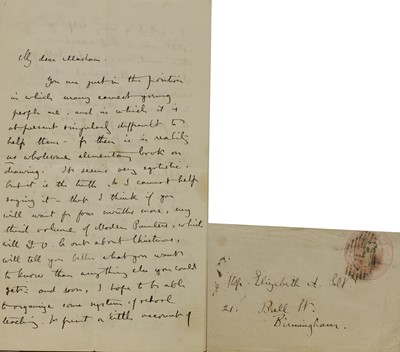 My dear Madam.
You are just in the position
in which many earnest young
people are, and in which it is
at present singularly difficult to
help them - for there is in reality
no wholesome elementary book on
drawing. It seems very egotistic.
but it is the truth, & I cannot help
saying it - that I think if you
will wait for four months more, my
third volume of Modern Painters, which
will D.V. be out about Christmas,
will tell you better what you want
to know than anything else you could
get: and soon, I hope to be able
to organize some system of school
teaching. to print a little account of
Miss Elizabeth A.
21. Bull St.
Birmingham.